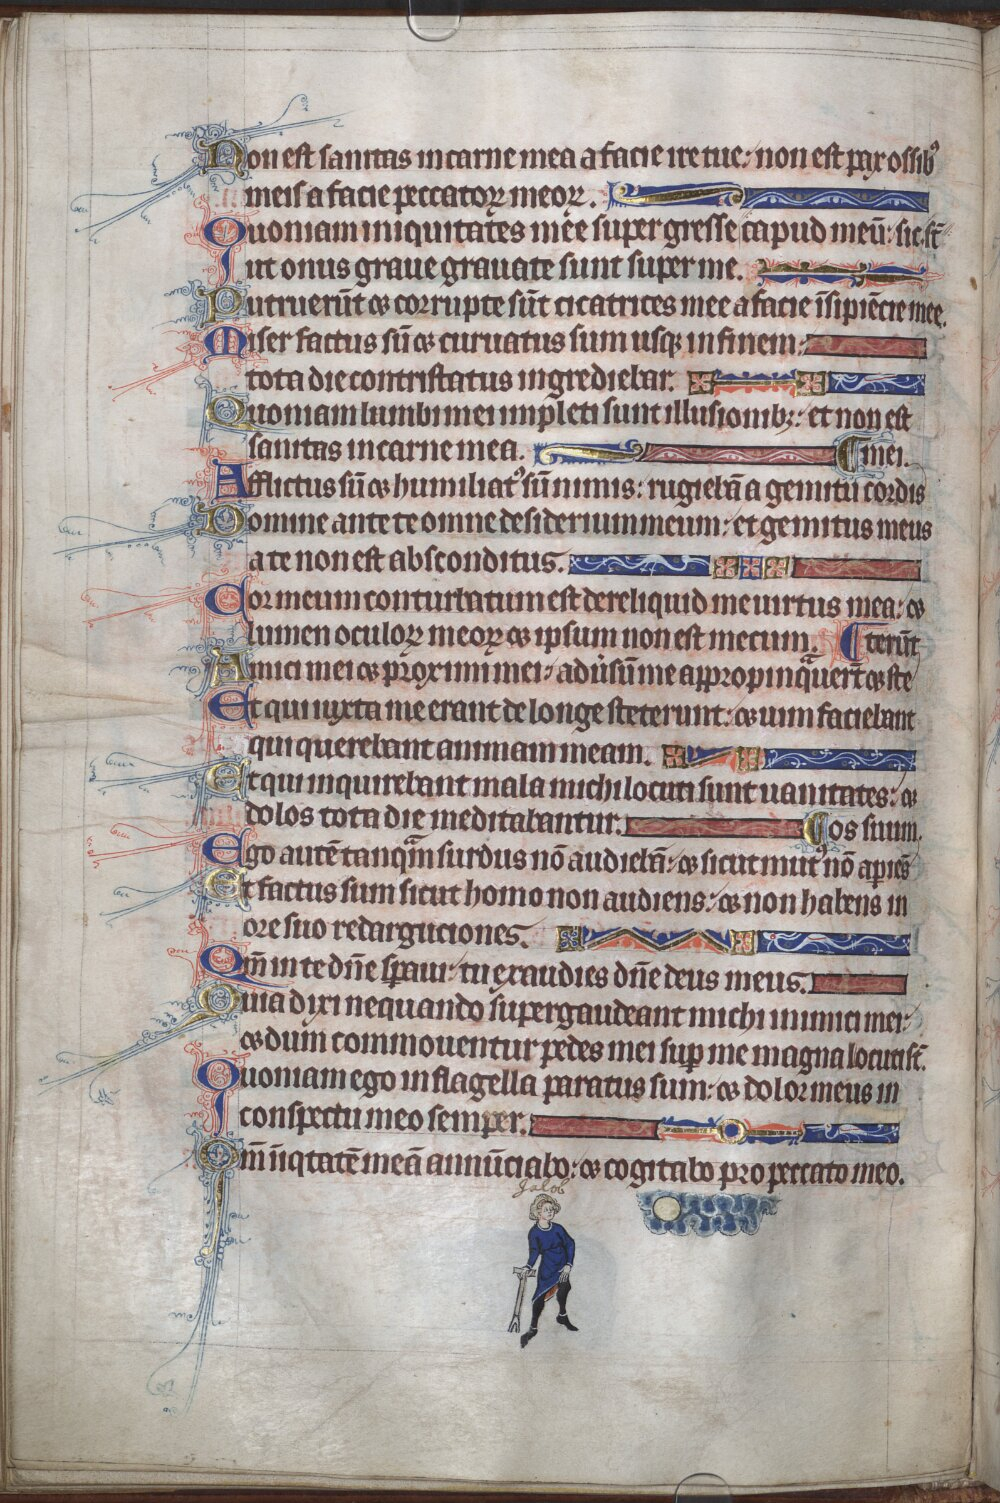 Non est sanitas in carne mea a facie ire tue: non est pax ossibꝯ
meis a facie peccatoꝝ meoꝝ.
Quoniam iniquitates mee supergresse capud meū: sic̄ st̄
ut onus graue grauate sunt super me.
Putruerūt ⁊ corrupte sūt cicatrices mee a facie īsipiēcie mee.
Miser factus sū ⁊ curuatus sum usqꝫ in finem:
tota die contristatus ingrediebar.
Quoniam lumbi mei impleti sunt illusionibꝫ: et non est
sanitas in carne mea.
mei.
Afflictus sū ⁊ humiliatꝯ sū nimis: rugiebā a gemitu cordis
Domine ante te omne desiderium meum: et gemitus meus
a te non est absconditus.
Cor meum conturbatum est dereliquid me uirtus mea: ⁊
lumen oculoꝝ meoꝝ ⁊ ipsum non est mecum.
terūt
Amici mei ⁊ proximi mei: aduͥsū me appropinqͣuert̄ ⁊ ste
Et qui iuxta me erant de longe steterunt: ⁊ uim faciebant
qui querebant animam meam.
Et qui inquirebant mala michi locuti sunt uanitates: ⁊
dolos tota die meditabantur.
os suum.
Ego autē tanqͣm surdus nō audiebā: ⁊ sicut mutꝯ nō apiēs
Et factus sum sicut homo non audiens: ⁊ non habens in
ore suo redarguciones.
Qm̄ in te dn̄e sp̄aui: tu exaudies dn̄e deus meus.
Quia dixi nequando supergaudeant michi inimici mei:
⁊ dum commouentur pedes mei suꝑ me magna locuti st̄.
Quoniam ego in flagella paratus sum: ⁊ dolor meus in
conspectu meo semper.
Qm̄ iīqͥtatē meā annūciabo: ⁊ cogitabo pro peccato meo.
Jacob